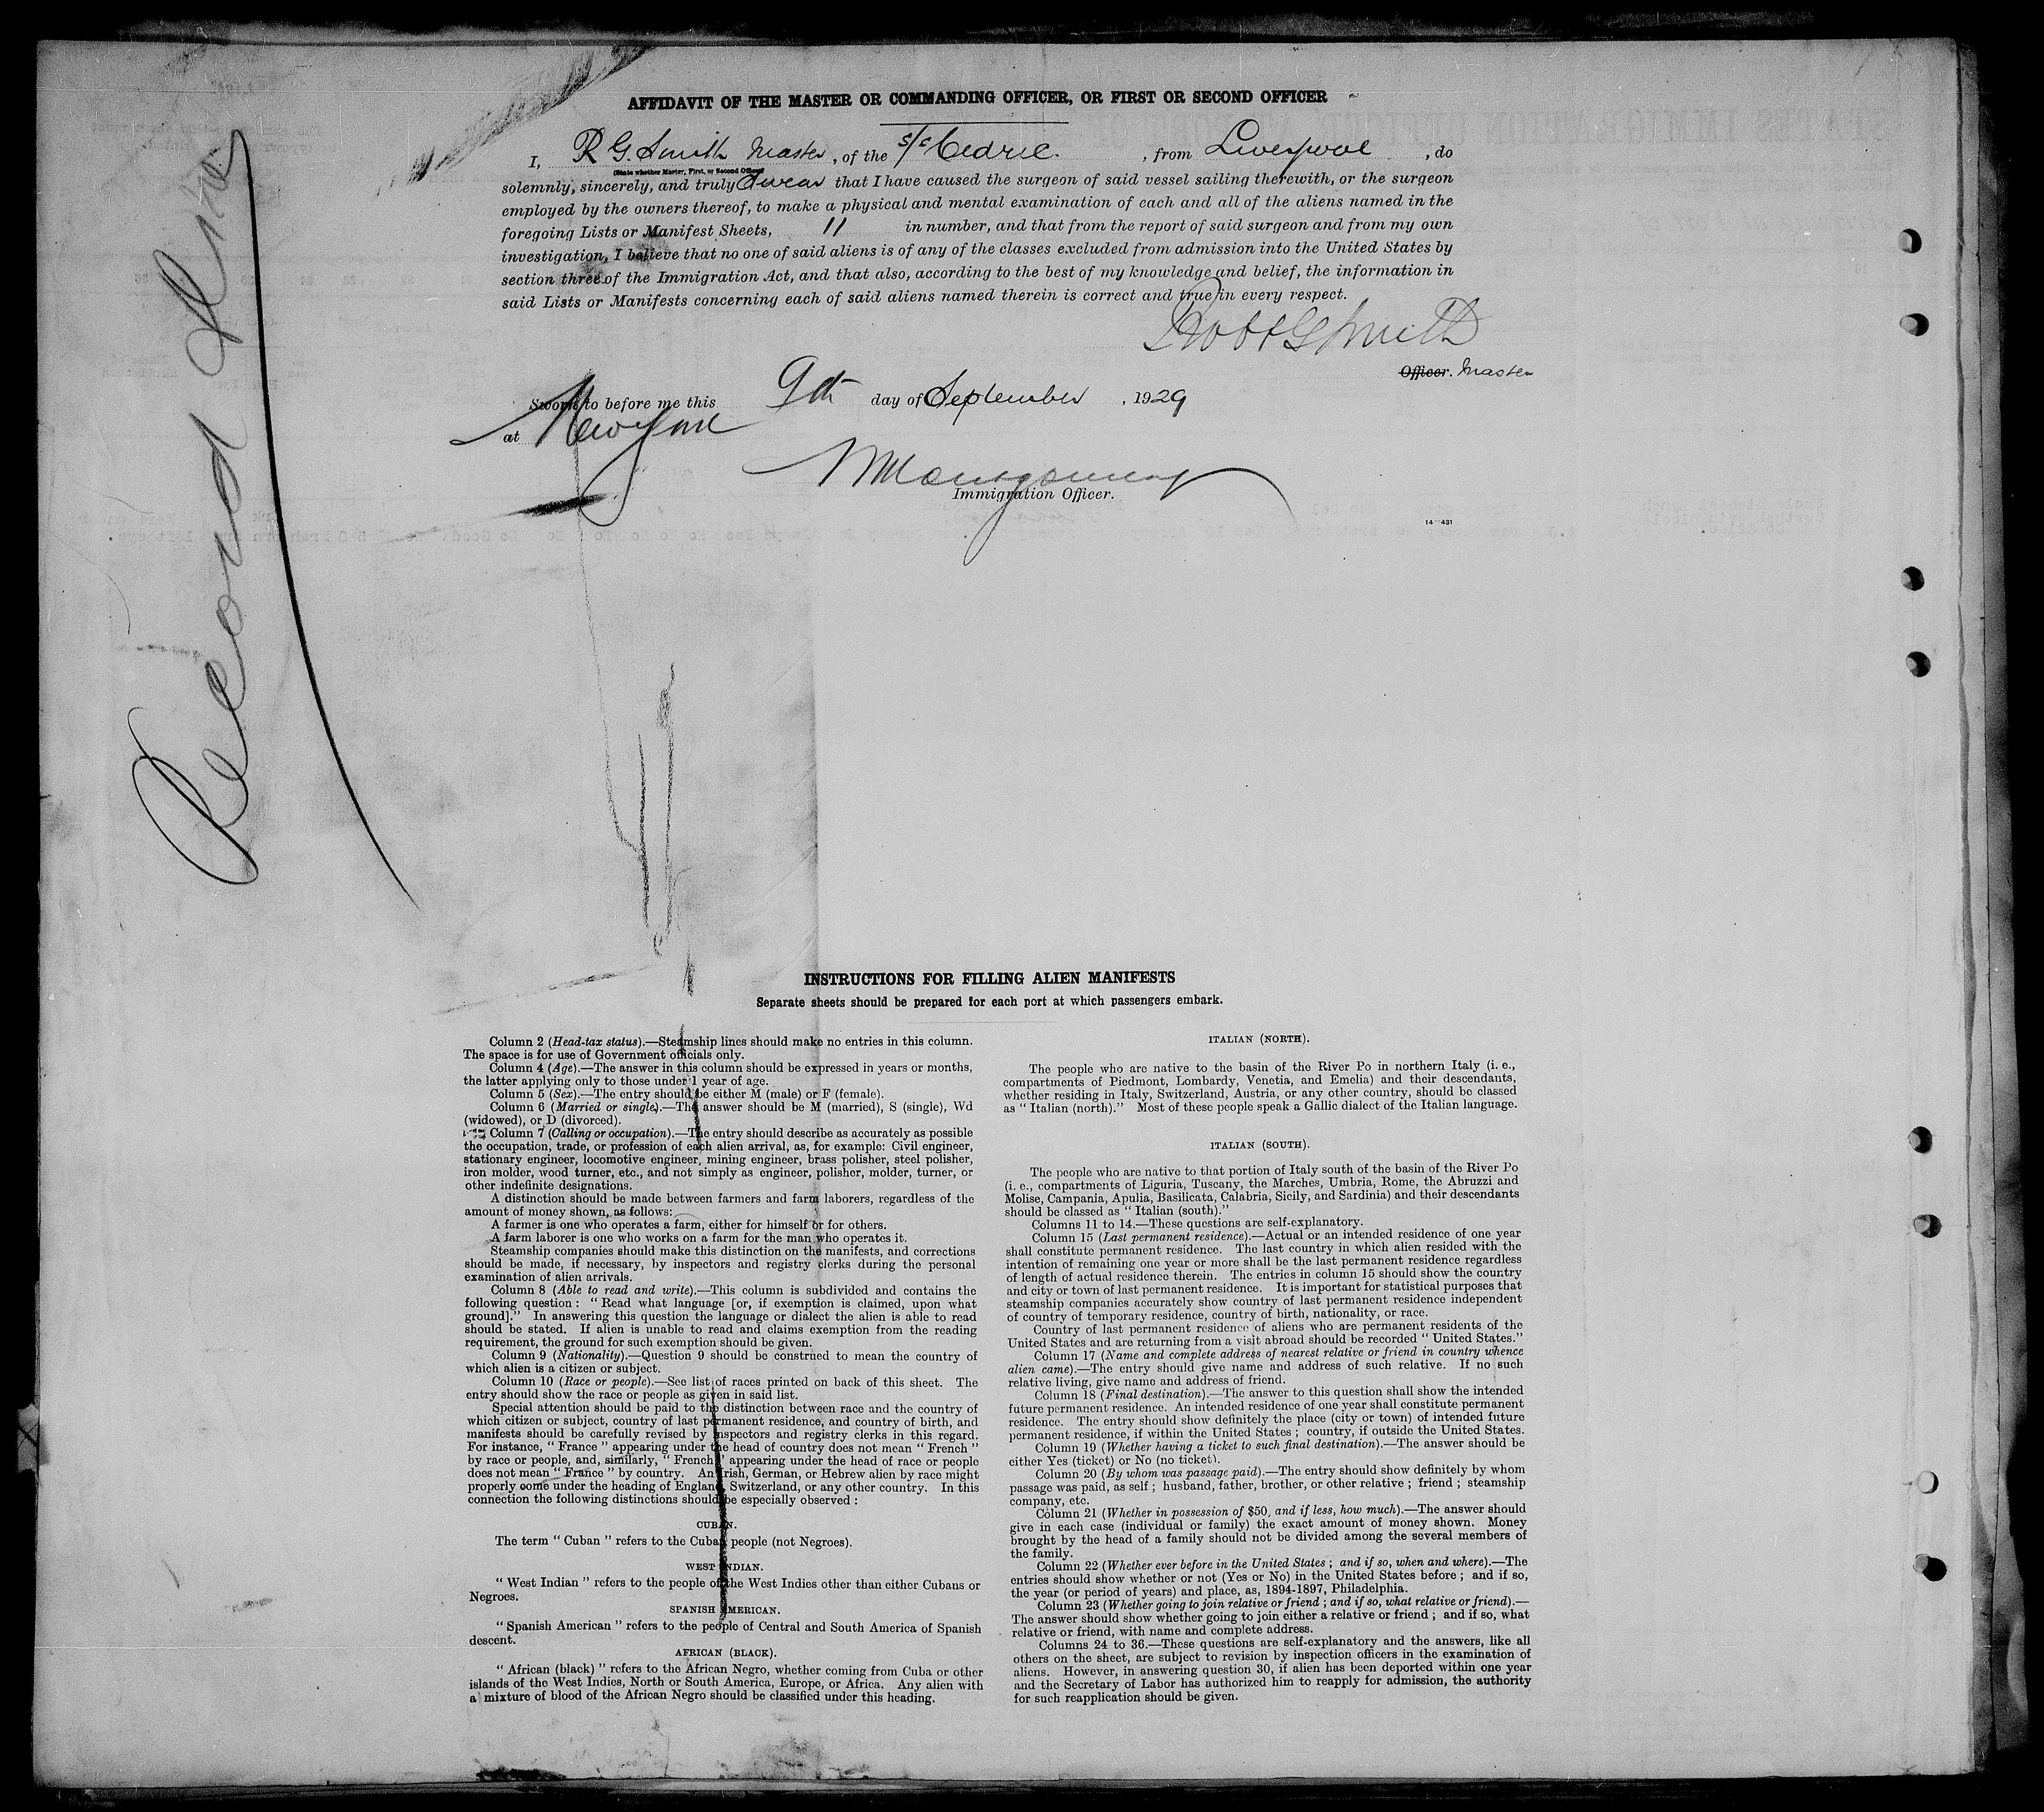 AFFIDAVIT OF THE MASTER OR COMMANDING OFFICER, OR FIRST OR SECOND OFFICER
I, R G. Smith Master, of the S/S Cedric, from Liverpool, do
(State whether Master, First, or Second Officer)
solemnly, sincerely, and truly swear that I have caused the surgeon of said vessel sailing therewith, or the surgeon
employed by the owners thereof, to make a physical and mental examination of each and all of the aliens named in the
foregoing Lists or Manifest Sheets, 11 in number, and that from the report of said surgeon and from my own
investigation, I believe that no one of said aliens is of any of the classes excluded from admission into the United States by
section three of the Immigration Act, and that also, according to the best of my knowledge and belief, the information in
said Lists or Manifests concerning each of said aliens named therein is correct and true in every respect.
Robt G Smith
Officer. Master
Sworn to before me this 9th day of September, 1929
at New York
Montgomery
Immigration Officer.
14—431
Record
INSTRUCTIONS FOR FILLING ALIEN MANIFESTS
Separate sheets should be prepared for each port at which passengers embark.
Column 2 (Head-tax status).—Steamship lines should make no entries in this column.
The space is for use of Government officials only.
Column 4 (Age).—The answer in this column should be expressed in years or months,
the latter applying only to those under 1 year of age.
Column 5 (Sex).—The entry should be either M (male) or F (female).
Column 6 (Married or single).—The answer should be M (married), S (single), Wd
(widowed), or D (divorced).
Column 7 (Calling or occupation).—The entry should describe as accurately as possible
the occupation, trade, or profession of each alien arrival, as, for example: Civil engineer,
stationary engineer, locomotive engineer, mining engineer, brass polisher, steel polisher,
iron molder, wood turner, etc., and not simply as engineer, polisher, molder, turner, or
other indefinite designations.
A distinction should be made between farmers and farm laborers, regardless of the
amount of money shown, as follows:
A farmer is one who operates a farm, either for himself or for others.
A farm laborer is one who works on a farm for the man who operates it.
Steamship companies should make this distinction on the manifests, and corrections
should be made, if necessary, by inspectors and registry clerks during the personal
examination of alien arrivals.
Column 8 (Able to read and write).—This column is subdivided and contains the
following question: "Read what language [or, if exemption is claimed, upon what
ground]." In answering this question the language or dialect the alien is able to read
should be stated. If alien is unable to read and claims exemption from the reading
requirement, the ground for such exemption should be given.
Column 9 (Nationality).—Question 9 should be construed to mean the country of
which alien is a citizen or subject.
Column 10 (Race or people).—See list of races printed on back of this sheet. The
entry should show the race or people as given in said list.
Special attention should be paid to the distinction between race and the country of
which citizen or subject, country of last permanent residence, and country of birth, and
manifests should be carefully revised by inspectors and registry clerks in this regard.
For instance, "France" appearing under the head of country does not mean "French"
by race or people, and, similarly, "French" appearing under the head of race or people
does not mean "France" by country. An Irish, German, or Hebrew alien by race might
properly come under the heading of England, Switzerland, or any other country. In this
connection the following distinctions should be especially observed:
CUBAN.
The term "Cuban" refers to the Cuban people (not Negroes).
WEST INDIAN.
"West Indian" refers to the people of the West Indies other than either Cubans or
Negroes.
SPANISH AMERICAN.
"Spanish American" refers to the people of Central and South America of Spanish
descent.
AFRICAN (BLACK).
"African (black)" refers to the African Negro, whether coming from Cuba or other
islands of the West Indies, North or South America, Europe, or Africa. Any alien with
a mixture of blood of the African Negro should be classified under this heading.
ITALIAN (NORTH).
The people who are native to the basin of the River Po in northern Italy (i. e.,
compartments of Piedmont, Lombardy, Venetia, and Emelia) and their descendants,
whether residing in Italy, Switzerland, Austria, or any other country, should be classed
as "Italian (north)." Most of these people speak a Gallic dialect of the Italian language.
ITALIAN (SOUTH).
The people who are native to that portion of Italy south of the basin of the River Po
(i. e., compartments of Liguria, Tuscany, the Marches, Umbria, Rome, the Abruzzi and
Molise, Campania, Apulia, Basilicata, Calabria, Sicily, and Sardinia) and their descendants
should be classed as "Italian (south)."
Columns 11 to 14.—These questions are self-explanatory.
Column 15 (Last permanent residence).—Actual or an intended residence of one year
shall constitute permanent residence. The last country in which alien resided with the
intention of remaining one year or more shall be the last permanent residence regardless
of length of actual residence therein. The entries in column 15 should show the country
and city or town of last permanent residence. It is important for statistical purposes that
steamship companies accurately show country of last permanent residence independent
of country of temporary residence, country of birth, nationality, or race.
Country of last permanent residence of aliens who are permanent residents of the
United States and are returning from a visit abroad should be recorded "United States."
Column 17 (Name and complete address of nearest relative or friend in country whence
alien came).—The entry should give name and address of such relative. If no such
relative living, give name and address of friend.
Column 18 (Final destination).—The answer to this question shall show the intended
future permanent residence. An intended residence of one year shall constitute permanent
residence. The entry should show definitely the place (city or town) of intended future
permanent residence, if within the United States; country, if outside the United States.
Column 19 (Whether having a ticket to such final destination).—The answer should be
either Yes (ticket) or No (no ticket).
Column 20 (By whom was passage paid).—The entry should show definitely by whom
passage was paid, as self; husband, father, brother, or other relative; friend; steamship
company, etc.
Column 21 (Whether in possession of $50, and if less, how much).—The answer should
give in each case (individual or family) the exact amount of money shown. Money
brought by the head of a family should not be divided among the several members of
the family.
Column 22 (Whether ever before in the United States; and if so, when and where).—The
entries should show whether or not (Yes or No) in the United States before; and if so,
the year (or period of years) and place, as, 1894-1897, Philadelphia.
Column 23 (Whether going to join relative or friend; and if so, what relative or friend).—
The answer should show whether going to join either a relative or friend; and if so, what
relative or friend, with name and complete address.
Columns 24 to 36.—These questions are self-explanatory and the answers, like all
others on the sheet, are subject to revision by inspection officers in the examination of
aliens. However, in answering question 30, if alien has been deported within one year
and the Secretary of Labor has authorized him to reapply for admission, the authority
for such reapplication should be given.